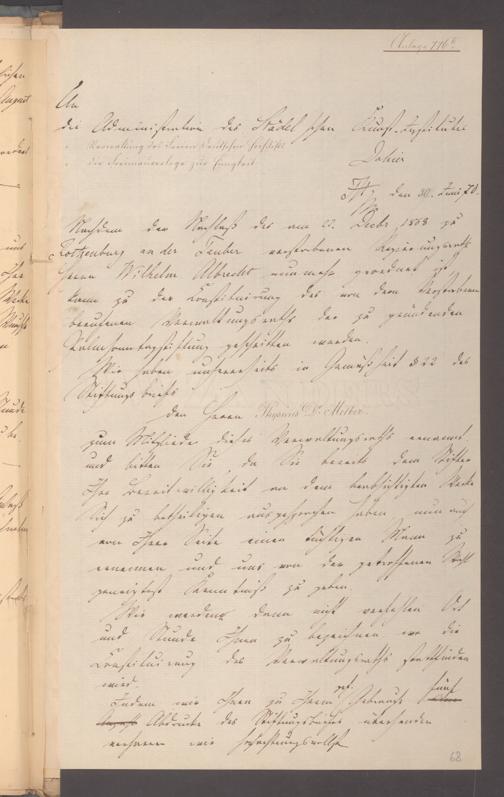 Anlage 116
An
die Administration des Städel'schen Kunst-Instituts
" Verwaltung des Freien Deutschen Hochstifts
" der Freimaurerloge zur Einigkeit
Dahier
den 30. Juni 70.
Nachdem der Nachlaß des am 27. Decbr 1868 zu
Rothenburg an der Tauber verstorbenen Regierungsrath
Herrn Wilhelm Albrecht nunmehr geordnet ist
kann zu der Constituirung des von dem Verstorbenen
berufenen Verwaltungsraths der zu gründenden
geschritten werden.
Wir haben unsererseits in Gemäßheit § 22 des
Stiftungsbriefs
den Herrn Physicus Dr. Melber
zum Mitgliede dieses Verwaltungsraths ernannt
und bitten Sie, da Sie bereits dem Stifter
Ihre Bereitwilligkeit an dem beabsichtigten Werke
Sich zu betheiligen ausgesprochen haben nun auch
von Ihrer Seite einen tüchtigen Mann zu
ernennen und uns von der getroffenen Wahl
geneigtest Kenntniß zu geben.
Wir werden dann nicht verfehlen Ort
und Stunde Ihnen zu bezeichnen wo die
Constituirung des Verwaltungsraths stattfinden
wird.
Indem wir Ihnen zu Ihrem gef. Gebrauche fünf
Abdrücke des Stiftungsbriefes übersenden
verharren wir hochachtungsvollst
68